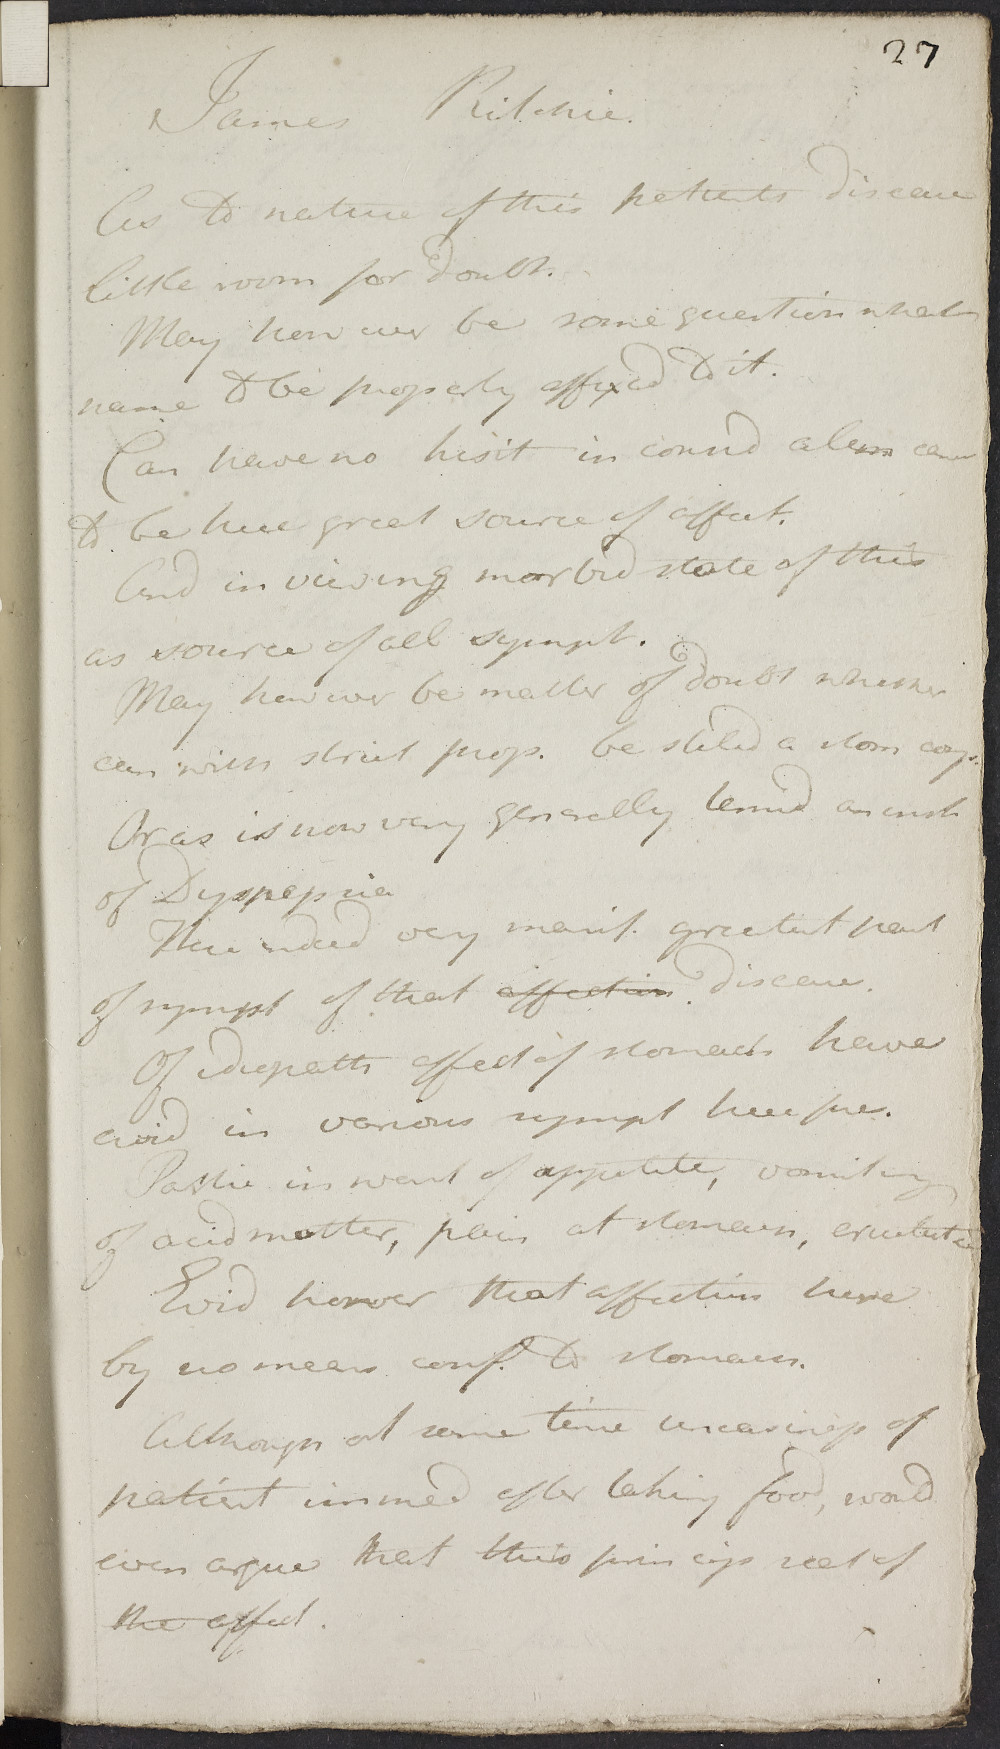 27
James Ritchie.
As to nature of this patients disease
little room for doubt.
May however be some question what
name to be properly affixed to it.
Can have no hesit in consid alim canal
to be here great source of affect.
And in viewing morbid state of this
as source of all sympt.
May however be matter of doubt whether
can with strict prop. be stiled a stom comp.
Or as is now very generally termd an inst
of Dyspepsia
Have indeed very manif. greatest part
of sympt of that affection disease.
Of idiopath affect of stomach have
evid in various sympt here pres.
Partic in want of appetite, vomiting
of acid matter, pain at stomach, eructation
Evid however that affection here
by no means conf. to stomach.
Although at same time uneasiness of
patient immed after taking food, would
even argue that this princip seat of
the affect.